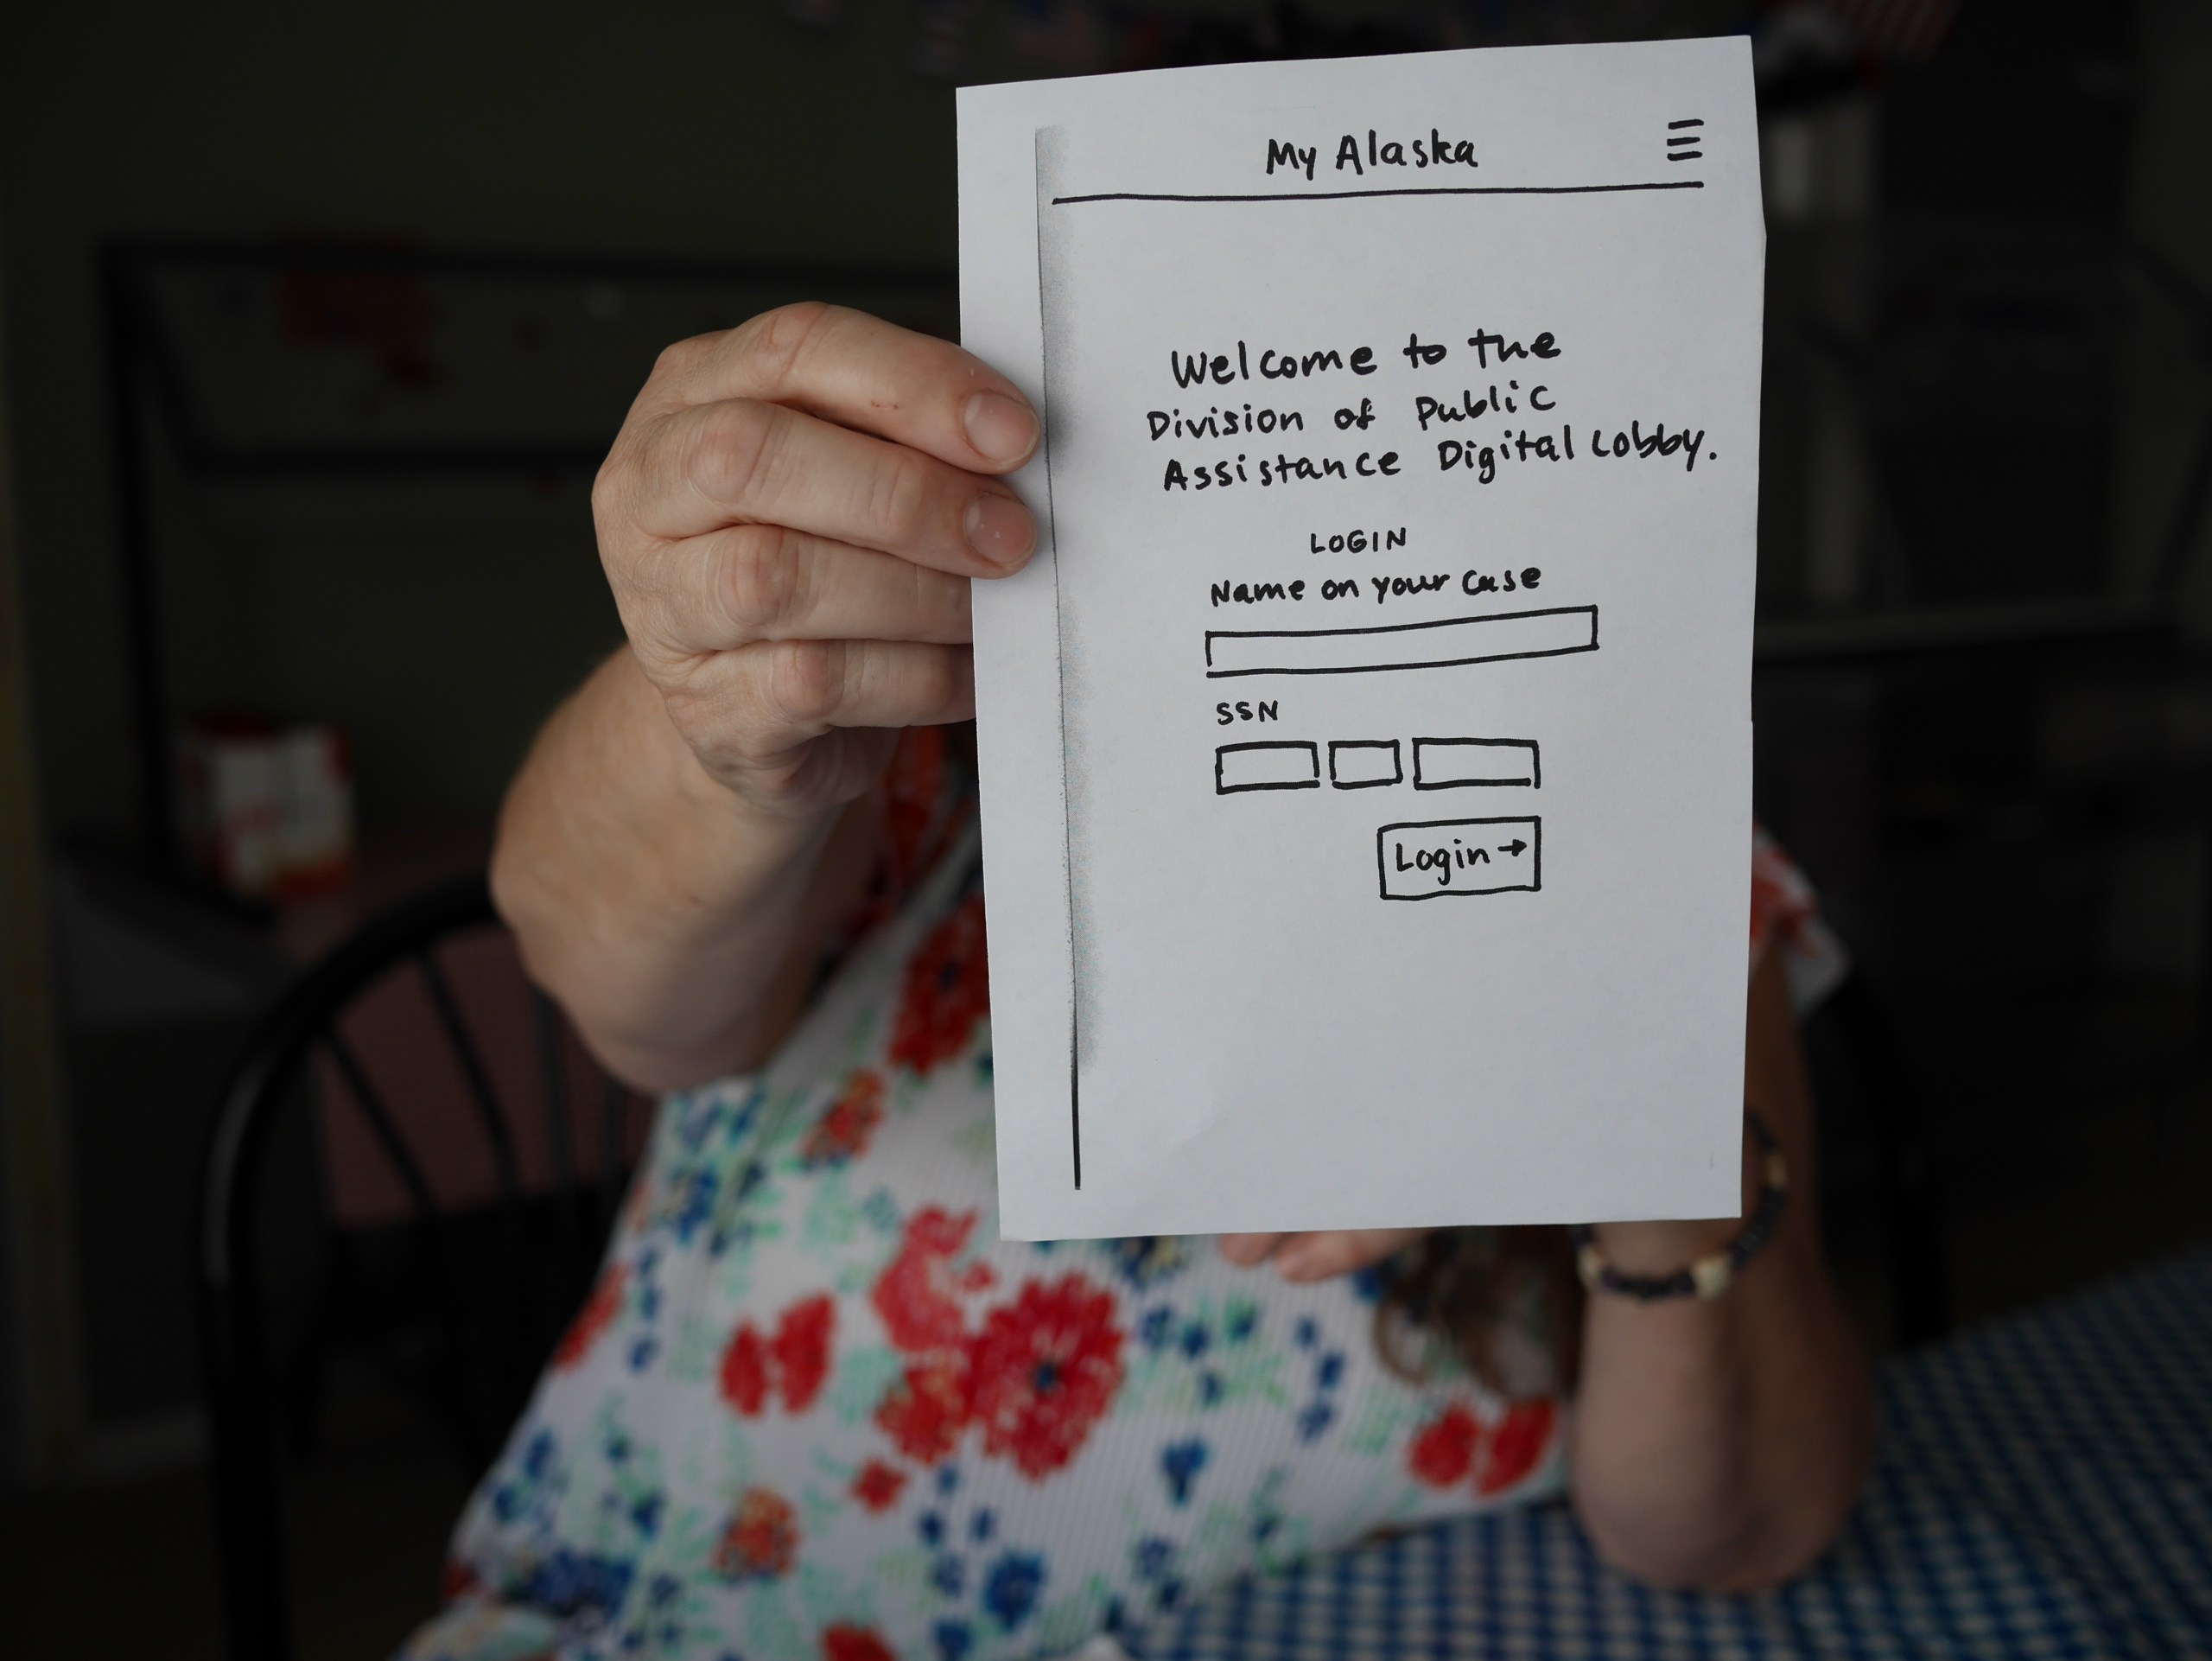 My Alaska
Welcome to the
Division of Public
Assistance Digital Lobby.
LOGIN
Name on your case
SSN
Login →